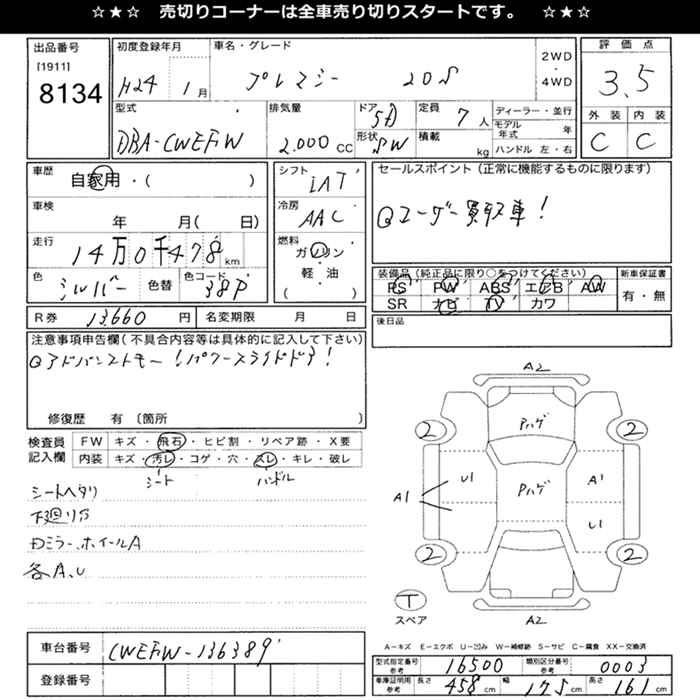 ☆★☆ 売切りコーナーは全車売り切りスタートです。 ☆★☆
出品番号 [1911] 8134
初度登録年月 H24 1月
車名・グレード プレマシー 20S
2WD・4WD
評価点 3.5
型式 DBA-CWEFW
排気量 2.000 CC
ドア 5D
形状 SW
定員 7人
積載 kg
ディーラー・並行
モデル年式 年
ハンドル 左・右
外装 C 内装 C
車歴 自家用・( )
車検 年 月( 日)
走行 14万0千478km
色 シルバー 色替 色コード 38P
シフト iAT
冷房 AAC
燃料 ガソリン・軽・油 ( )
セールスポイント(正常に機能するものに限ります)
Qユーザー買取車!
装備品(純品に限り○をつけてください)
PS PW ABS エアB AW
SR ナビ TV カワ
新車保証書 有・無
R券 13,660円 名変期限 月 日
後日品
注意事項申告欄(不具合内容等は具体的に記入して下さい)
Qアドバンストキー!パワースライドドア!
修復歴 有 〔箇所 〕
検査員記入欄
FW キズ・飛石・ヒビ割・リペア跡・X要
内装 キズ・汚レ・コゲ・穴・スレ・キレ・破レ
シート ハンドル
シートヘタリ
下廻りサ
Dミラー.ホイールA
各A.U
A2
Pハゲ
2 2
U1 Pハゲ A1
A1
U1
2 2
T スペア
A2
A−キズ E−エクボ U−凹み W−補修跡 S−サビ C−腐食 XX−交換済
車台番号 CWEFW-136389
登録番号
型式指定番号 参考 16500 類別区分番号 参考 0003
車庫証明用 参考 長さ 458cm 幅 175cm 高さ 161cm